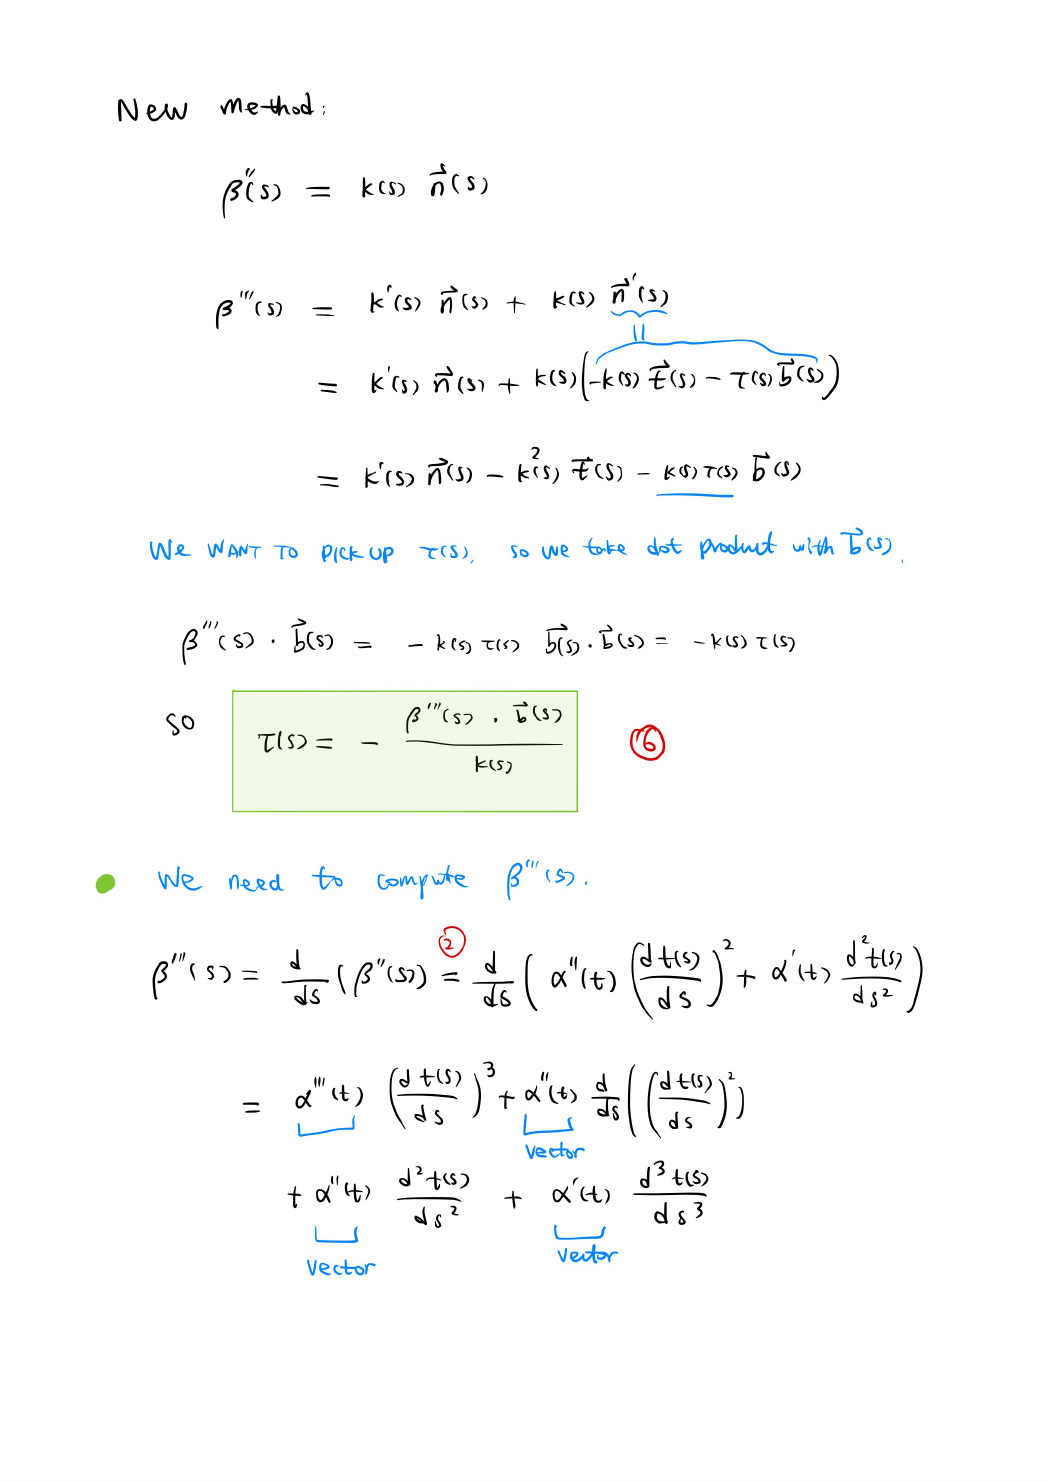 New method:
β''(s) = k(s) n⃗(s)
β'''(s) = k'(s) n⃗(s) + k(s) n⃗'(s)
= k'(s) n⃗(s) + k(s)(-k(s) t⃗(s) - τ(s) b⃗(s))
= k'(s) n⃗(s) - k²(s) t⃗(s) - k(s) τ(s) b⃗(s)
We WANT TO PICK UP τ(s), so we take dot product with b⃗(s).
β'''(s) · b⃗(s) = - k(s) τ(s) b⃗(s) · b⃗(s) = - k(s) τ(s)
so τ(s) = - β'''(s) · b⃗(s) / k(s) ⑥
We need to compute β'''(s).
②
β'''(s) = d/ds (β''(s)) = d/ds ( α''(t) (dt(s)/ds)² + α'(t) d²t(s)/ds² )
= α'''(t) (dt(s)/ds)³ + α''(t) d/ds ((dt(s)/ds)²)
vector
+ α''(t) d²t(s)/ds² + α'(t) d³t(s)/ds³
vector vector